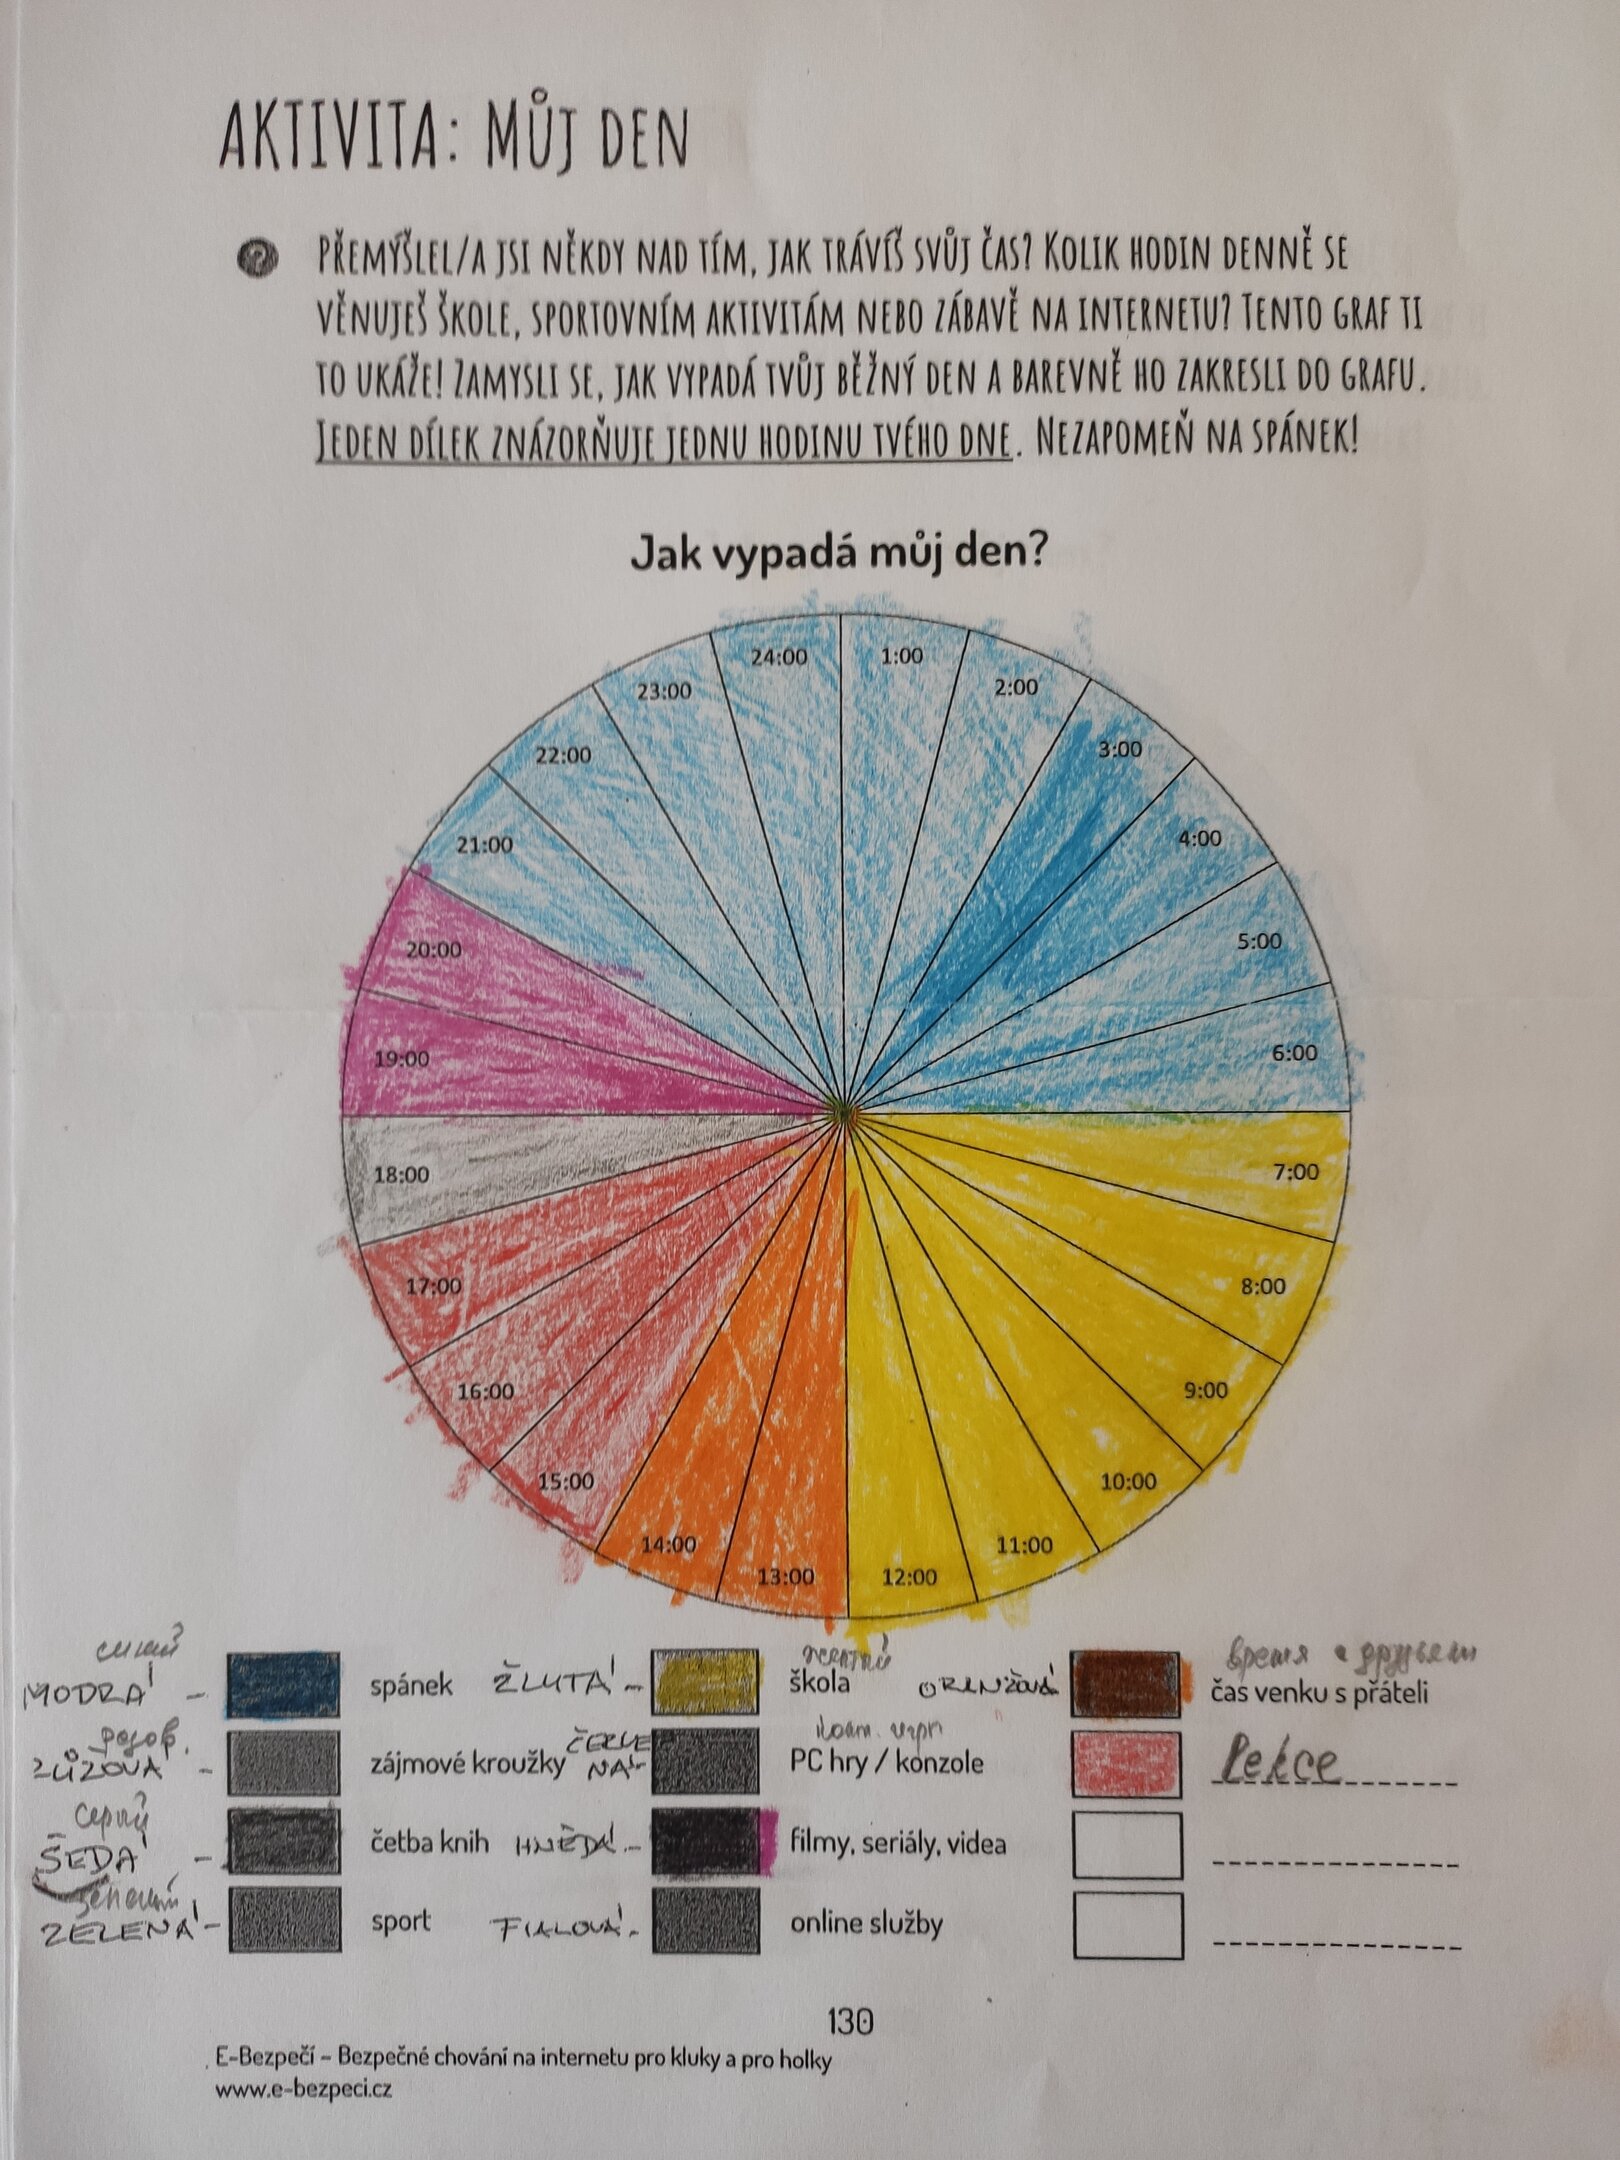 AKTIVITA: MŮJ DEN
?
PŘEMÝŠLEL/A JSI NĚKDY NAD TÍM, JAK TRÁVÍŠ SVŮJ ČAS? KOLIK HODIN DENNĚ SE
VĚNUJEŠ ŠKOLE, SPORTOVNÍM AKTIVITÁM NEBO ZÁBAVĚ NA INTERNETU? TENTO GRAF TI
TO UKÁŽE! ZAMYSLI SE, JAK VYPADÁ TVŮJ BĚŽNÝ DEN A BAREVNĚ HO ZAKRESLI DO GRAFU.
JEDEN DÍLEK ZNÁZORŇUJE JEDNU HODINU TVÉHO DNE. NEZAPOMEŇ NA SPÁNEK!
Jak vypadá můj den?
24:00
1:00
23:00
2:00
22:00
3:00
21:00
4:00
20:00
5:00
19:00
6:00
18:00
7:00
17:00
8:00
16:00
9:00
15:00
10:00
14:00
11:00
13:00
12:00
синий
MODRÁ –
spánek
ŽLUTÁ –
škola
время с друзьями
čas venku s přáteli
розов.
zájmové kroužky
ČERVE
NÁ –
PC hry / konzole
Lekce
серый
ŠEDÁ –
četba knih
HNĚDÁ –
filmy, seriály, videa
ZELENÁ –
sport
FIALOVÁ –
online služby
130
E-Bezpečí – Bezpečné chování na internetu pro kluky a pro holky
www.e-bezpeci.cz